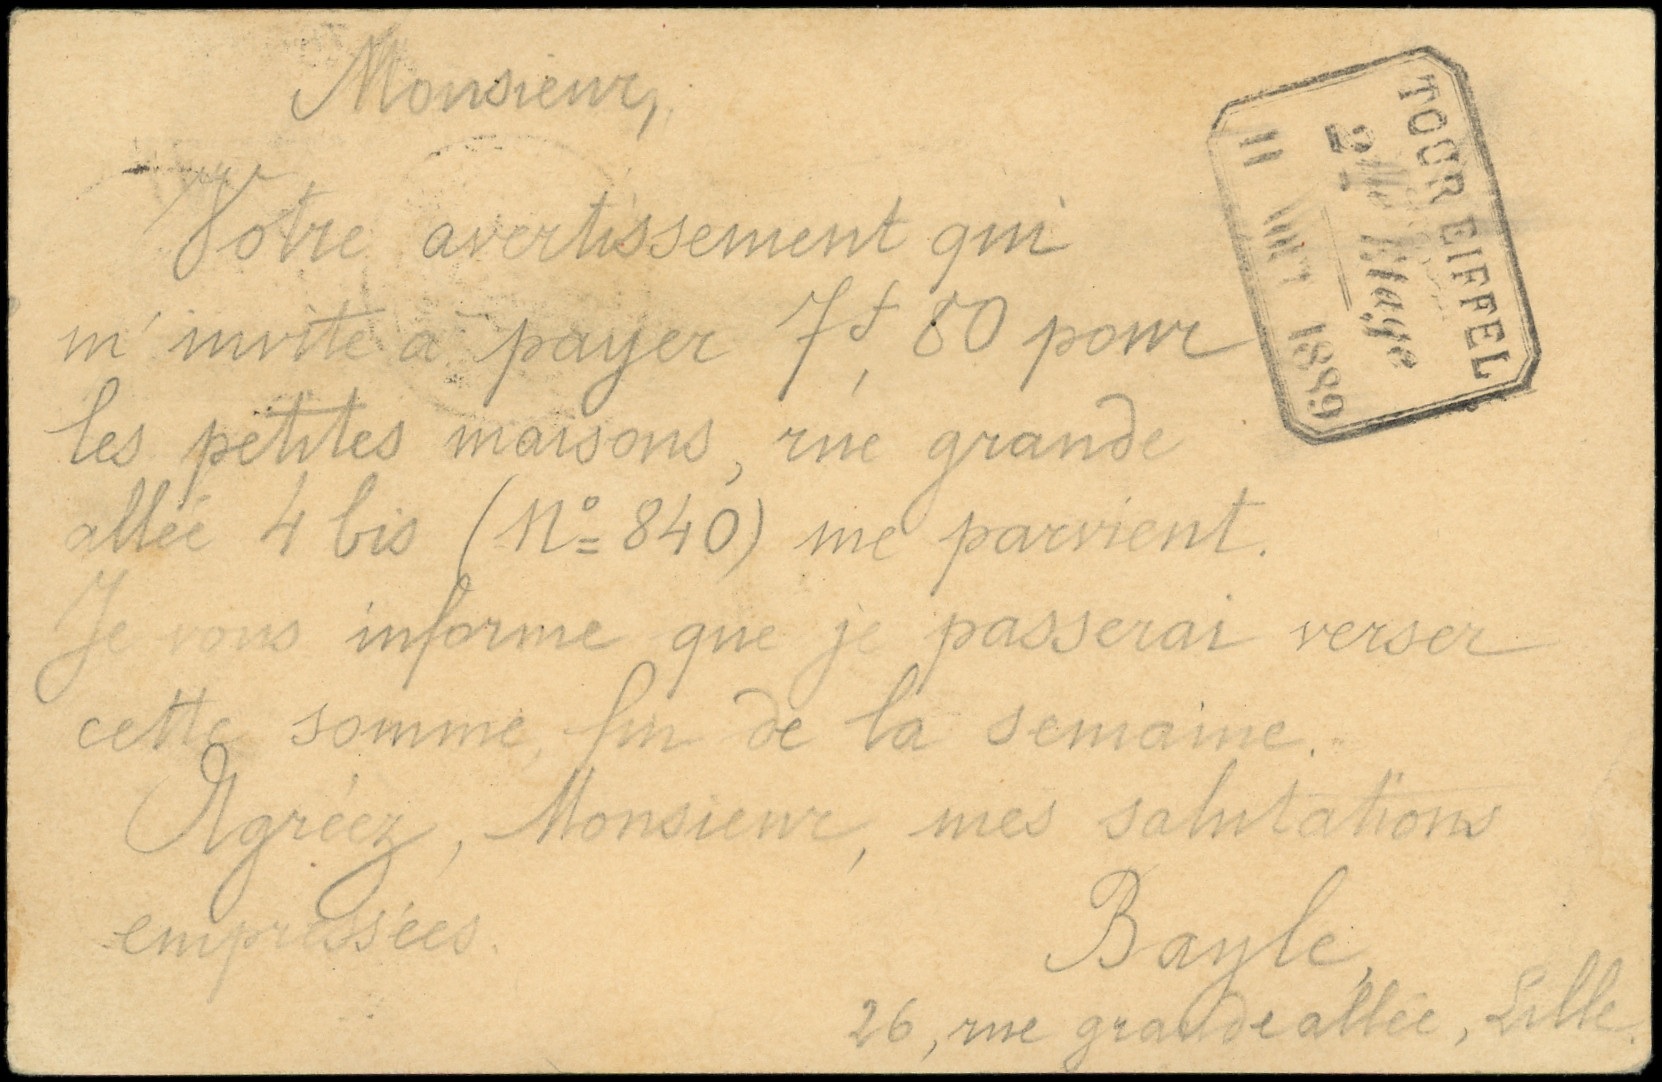 Monsieur,
Votre avertissement qui
m'invite à payer 7f,80 pour
les petites maisons, rue grande
allée 4 bis (No= 840) me parvient.
Je vous informe que je passerai verser
cette somme, fin de la semaine.
Agréez, Monsieur, mes salutations
empressées.
Bayle,
26, rue grande allée, Lille.
TOUR EIFFEL
2me Etage
11 AOUT 1889